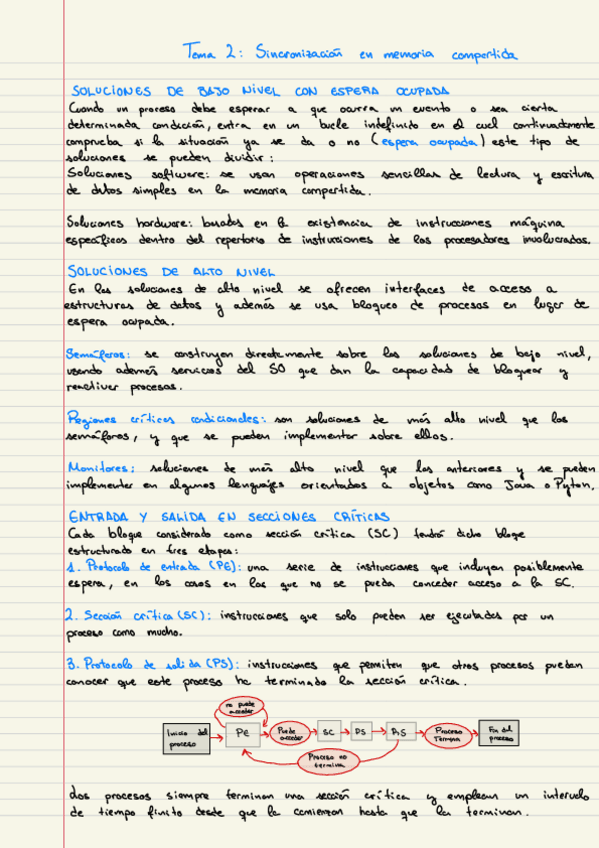 Tema 2: Sincronización en memoria compartida
SOLUCIONES DE BAJO NIVEL CON ESPERA OCUPADA
Cuando un proceso debe esperar a que ocurra un evento o sea cierta
determinada condición, entra en un bucle indefinido en el cual continuamente
comprueba si la situación ya se da o no (espera ocupada) este tipo de
soluciones se pueden dividir:
Soluciones software: se usan operaciones sencillas de lectura y escritura
de datos simples en la memoria compartida.
Soluciones hardware: basadas en la existencia de instrucciones máquina
específicas dentro del repertorio de instrucciones de los procesadores involucrados.
SOLUCIONES DE ALTO NIVEL
En las soluciones de alto nivel se ofrecen interfaces de acceso a
estructuras de datos y además se usa bloqueo de procesos en lugar de
espera ocupada.
Semáforos: se construyen directamente sobre las soluciones de bajo nivel,
usando además servicios del SO que dan la capacidad de bloquear y
reactivar procesos.
Regiones críticas condicionales: son soluciones de más alto nivel que los
semáforos, y que se pueden implementar sobre ellos.
Monitores: soluciones de más alto nivel que las anteriores y se pueden
implementar en algunos lenguajes orientados a objetos como Java o Pyton.
ENTRADA Y SALIDA EN SECCIONES CRÍTICAS
Cada bloque considerado como sección crítica (SC) tendrá dicho bloque
estructurado en tres etapas:
1. Protocolo de entrada (PE): una serie de instrucciones que incluyan posiblemente
espera, en los casos en los que no se pueda conceder acceso a la SC.
2. Sección crítica (SC): instrucciones que solo pueden ser ejecutadas por un
proceso como mucho.
3. Protocolo de salida (PS): instrucciones que permiten que otros procesos puedan
conocer que este proceso ha terminado la sección crítica.
no puede
acceder
Inicio del
proceso
PE
Puede
acceder
SC
PS
Proceso
Termina
Fin del
proceso
Proceso no
termina
Los procesos siempre terminan una sección crítica y emplean un intervalo
de tiempo finito desde que la comienzan hasta que la terminan.